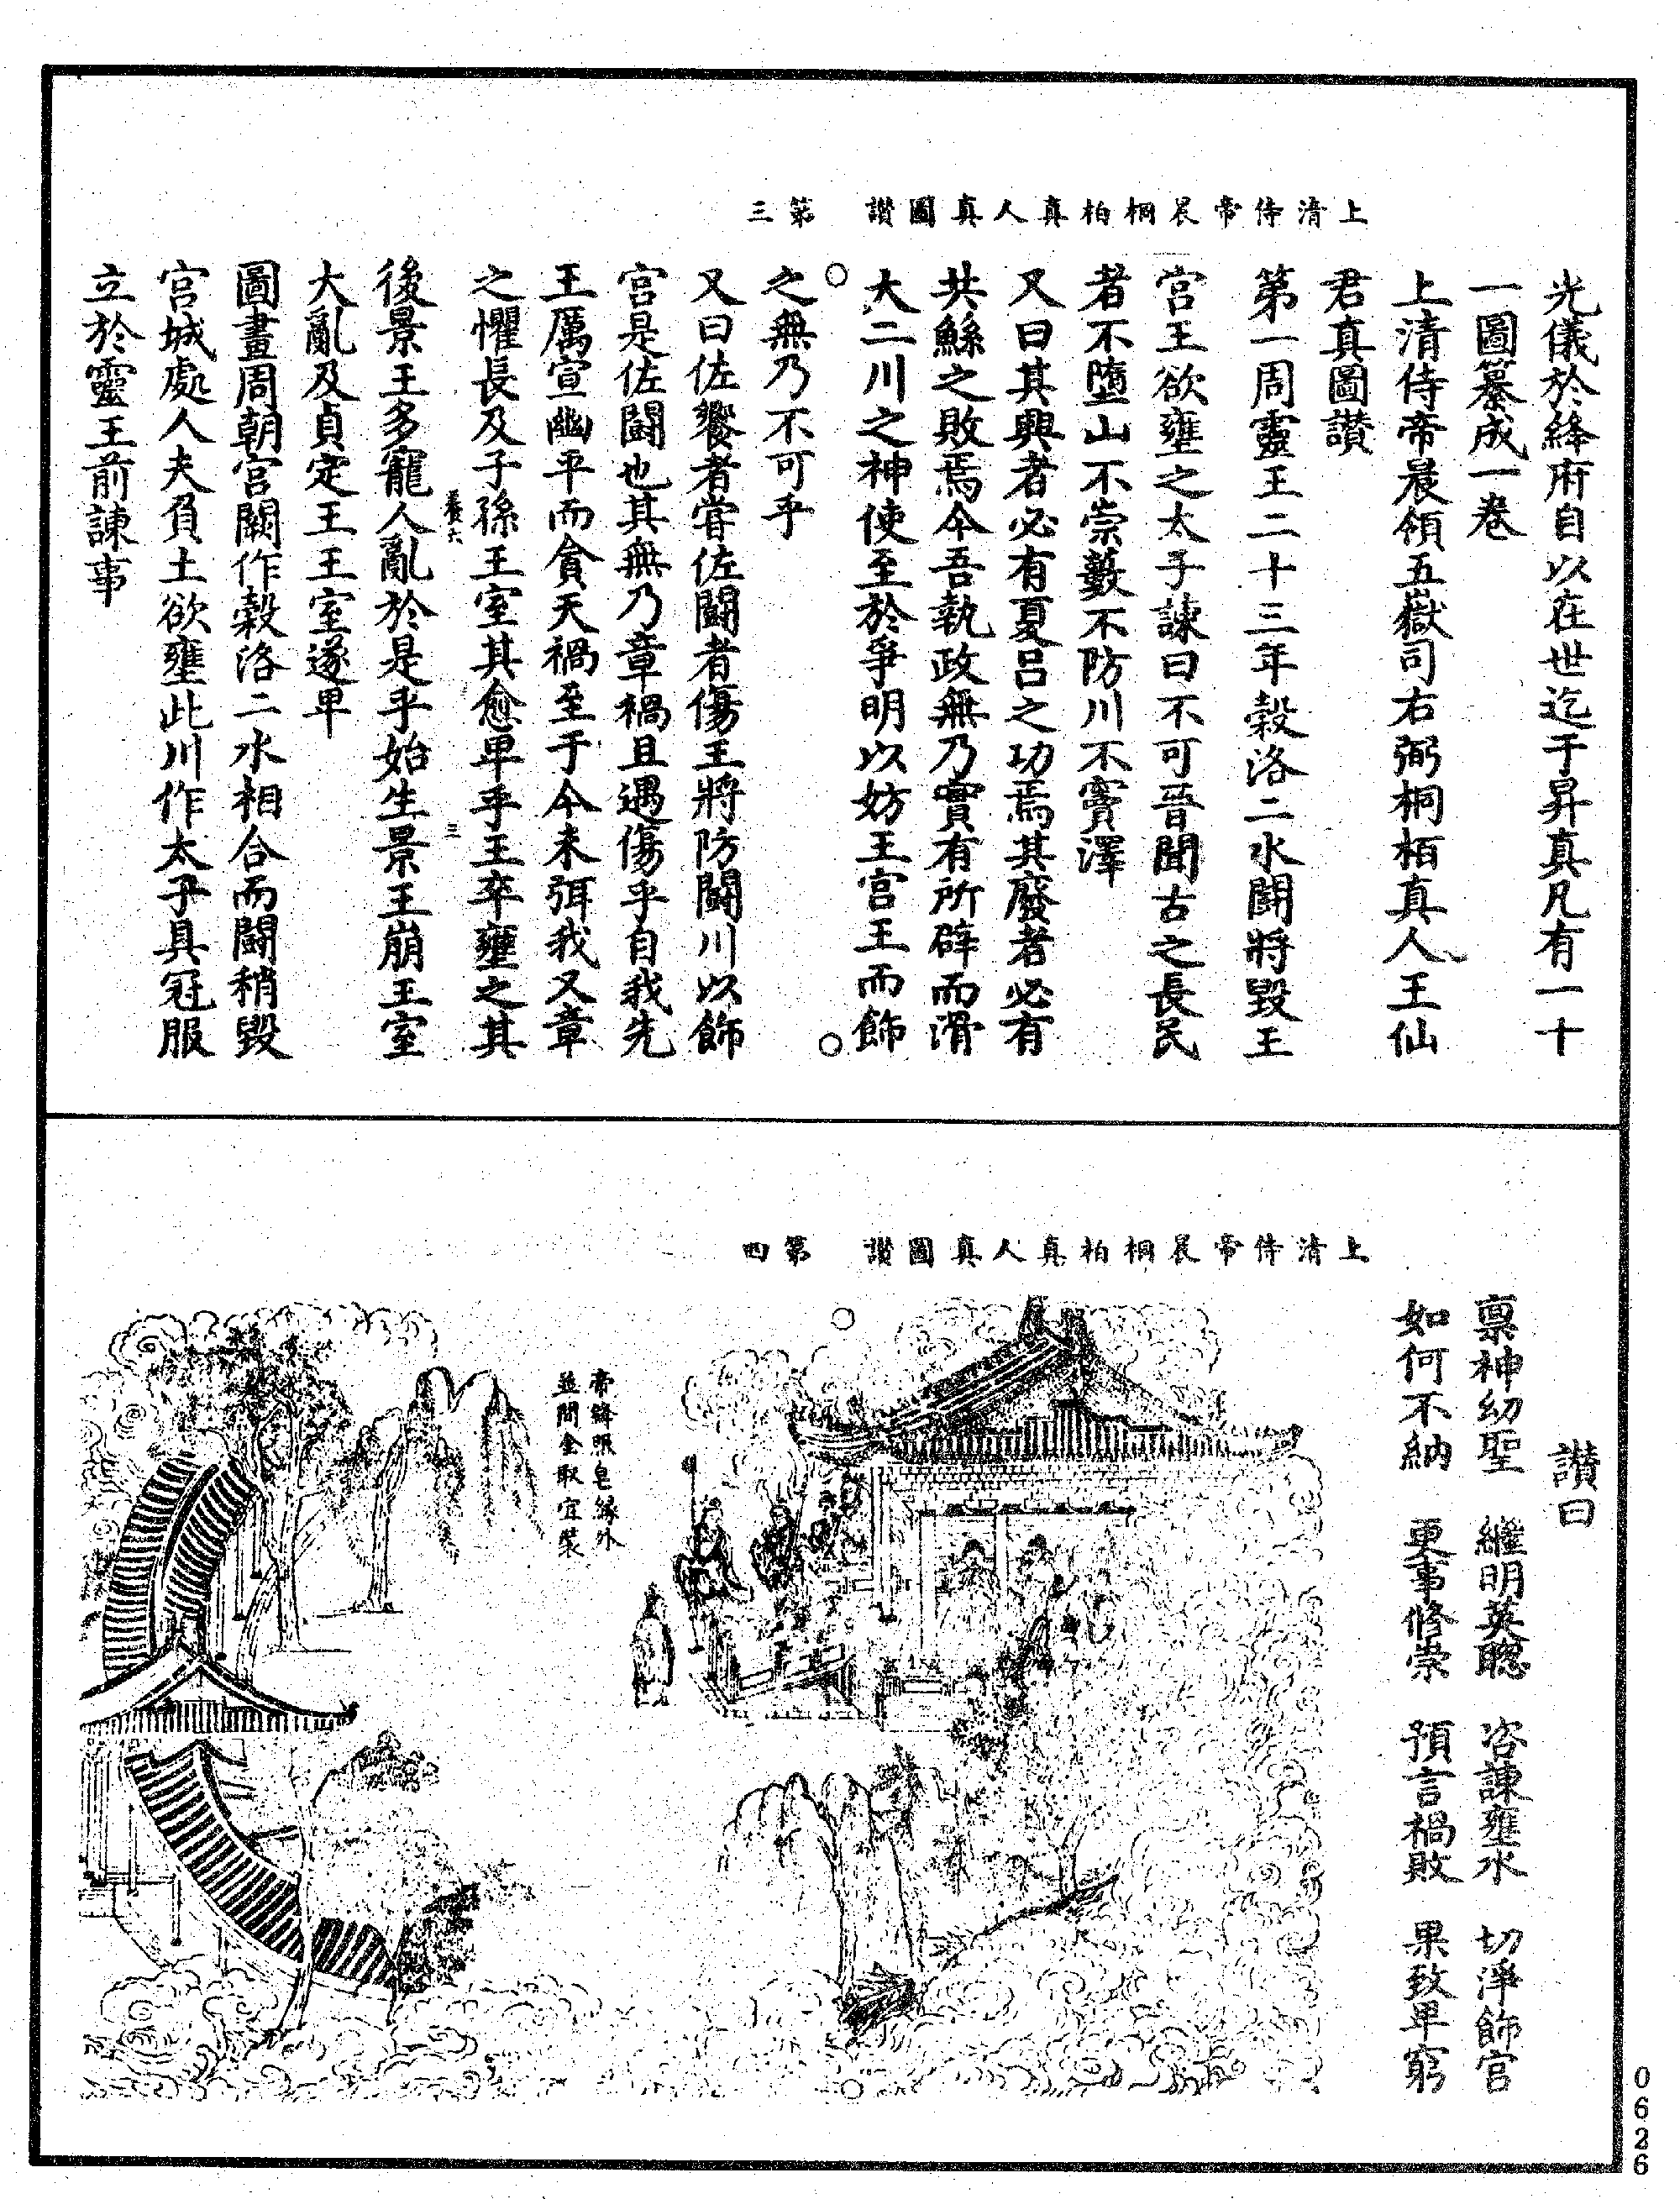 上清侍帝晨桐柏真人真圖讃　第三
光儀於絳府自以在世迄于昇真凡有一十
一圖纂成一卷
上清侍帝晨領五嶽司右弼桐栢真人王仙
君真圖讃
第一周靈王二十三年榖洛二水鬪將毀王
宮王欲壅之太子諫曰不可晉聞古之長民
者不墮山不崇藪不防川不竇澤
又曰其興者必有夏呂之功焉其廢者必有
共鯀之敗焉今吾執政無乃實有所辟而滑
大二川之神使至於爭明以妨王宮王而飾
之無乃不可乎
又曰佐饔者甞佐鬪者傷王將防鬪川以飾
宮是佐鬪也其無乃章禍且遇傷乎自我先
王厲宣幽平而貪天禍至于今未弭我又章
之懼長及子孫王室其愈卑乎王卒壅之其
三
後景王多寵人亂於是乎始生景王崩王室
大亂及貞定王王室遂卑
圖畫周朝宮闕作榖洛二水相合而鬪稍毀
宮城處人夫負土欲壅此川作太子具冠服
立於靈王前諫事
上清侍帝晨桐柏真人真圖讃　第四
讃曰
禀神幼聖　繼明英聰　咨諫壅水　切淨飾宮
如何不納　更事修崇　預言禍敗　果致卑窮
帝絳服皂緣外
並間金取宜裝
0626